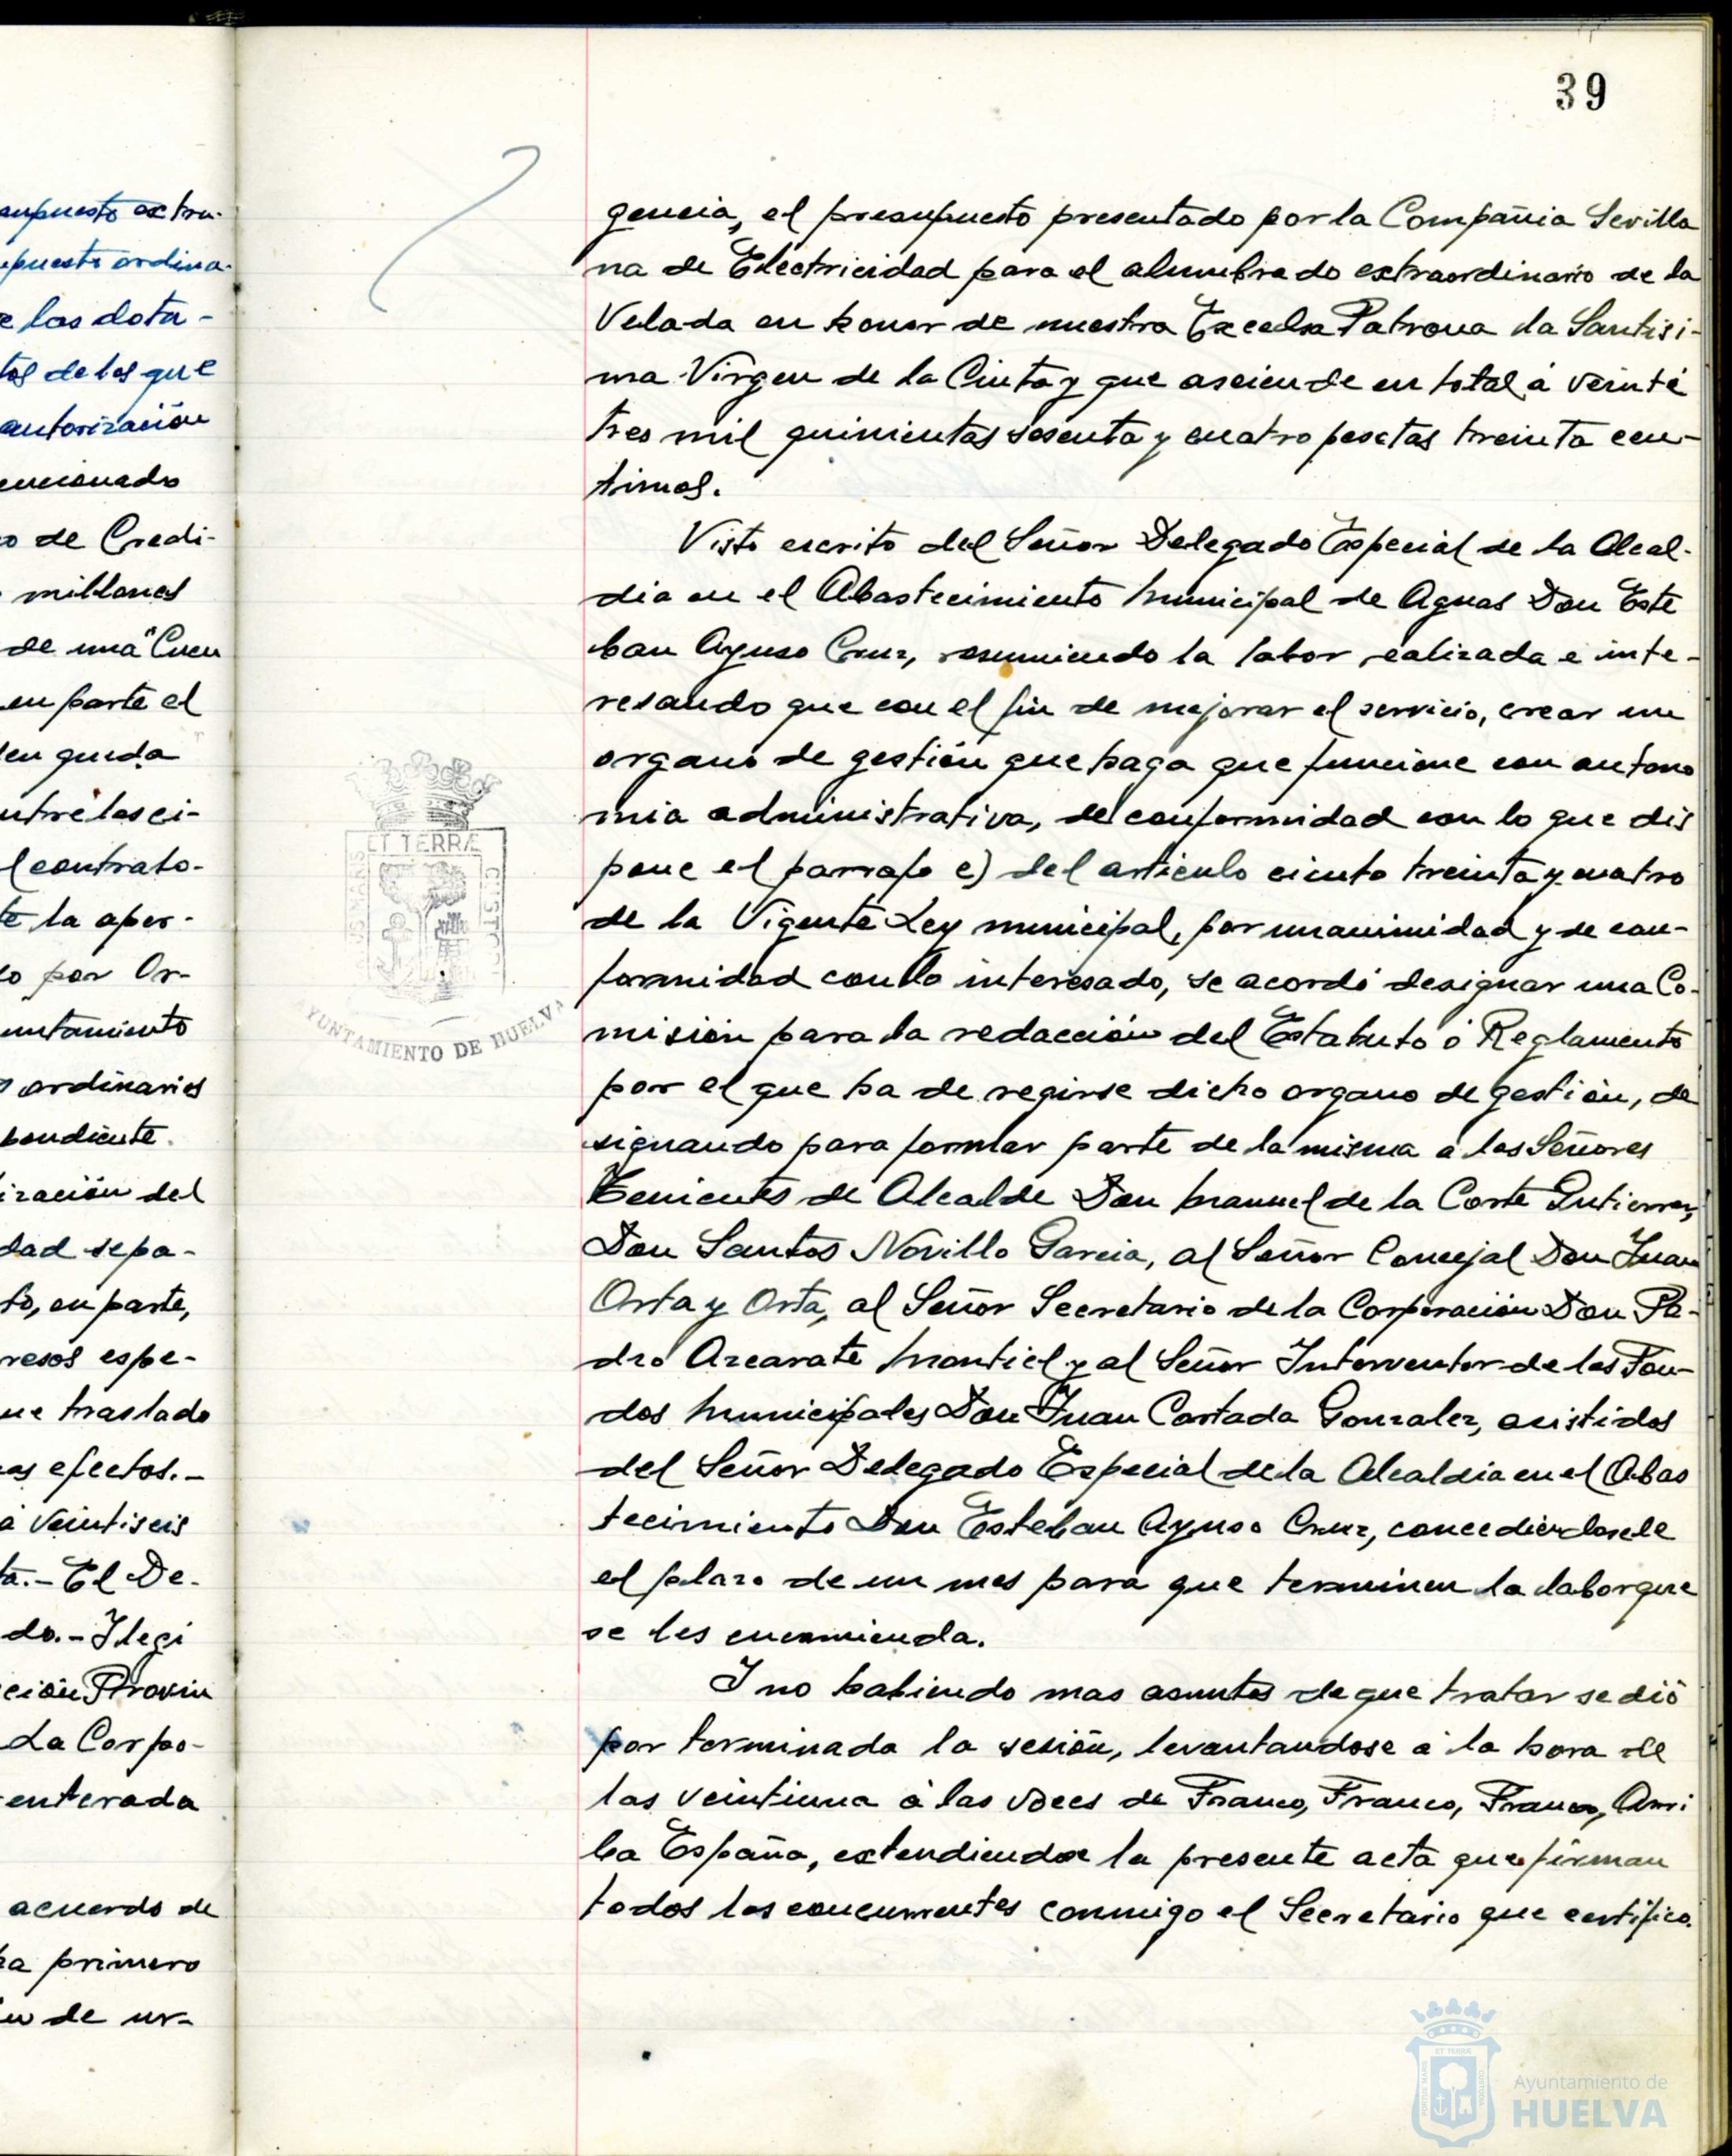 39
gencia, el presupuesto presentado por la Compañia Sevilla
na de Electricidad para el alumbrado extraordinario de la
Velada en honor de nuestra Excelsa Patrona la Santisi-
ma Virgen de la Cinta y que asciende en total á veinti
tres mil quinientas sesenta y cuatro pesetas treinta cen-
timos.
Visto escrito del Señor Delegado Especial de la Alcal-
dia en el Abastecimiento Municipal de Aguas Don Este
ban Ayuso Cruz, resumiendo la labor realizada e inte-
resando que con el fin de mejorar el servicio, crear un
organo de gestión que haga que funcione con autono
mia administrativa, de conformidad con lo que dis
pone el parrafo e) del articulo ciento treinta y cuatro
de la Vigente Ley municipal, por unanimidad y de con-
formidad con lo interesado, se acordó designar una Co-
misión para la redacción del Estatuto ó Reglamento
por el que ha de regirse dicho organo de gestión, de
signando para formar parte de la misma a los Señores
Tenientes de Alcalde Don Manuel de la Corte Gutierrez,
Don Santos Novillo Garcia, al Señor Concejal Don Juan
Orta y Orta, al Señor Secretario de la Corporación Don Pe-
dro Azcarate Montiel y al Señor Interventor de los Fon-
dos Municipales Don Juan Cortada Gonzalez, asistidos
del Señor Delegado Especial de la Alcaldia en el Abas
tecimiento Don Esteban Ayuso Cruz, concediendosele
el plazo de un mes para que terminen la labor que
se les encomienda.
I no habiendo mas asuntos de que tratar se dió
por terminada la sesión, levantandose á la hora de
las veintiuna á las voces de Franco, Franco, Franco, Arri
ba España, extendiendose la presente acta que firman
todos los concurrentes conmigo el Secretario que certifico.
ET TERRÆ
AYUNTAMIENTO DE HUELVA
e las dota-
tos de los que
autorización
o de Credi-
millones
de una "Cuen
en parte el
queda
contrato-
te la aper-
o por Or-
ordinarios
ización del
dad sepa-
to, en parte,
resos espe-
ue traslado
as efectos.-
á veintiseis
ta.- El De-
do.- Ilegi
ción Provin
La Corpo-
enterada
acuerdo de
ra primero
de ur-
Ayuntamiento de
HUELVA